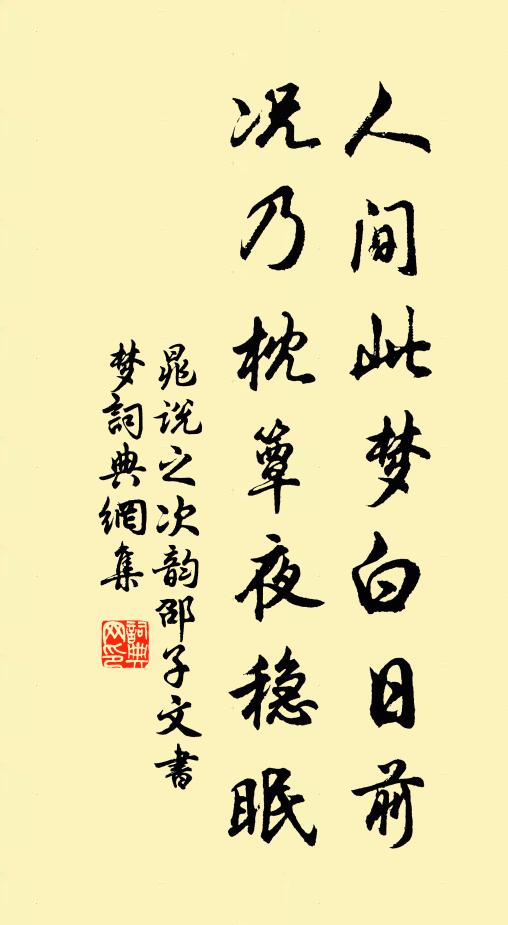 人间此梦白日前
况乃枕簟夜稳眠
晁说之次韵邵子文書
梦詞典網集
詞典网印